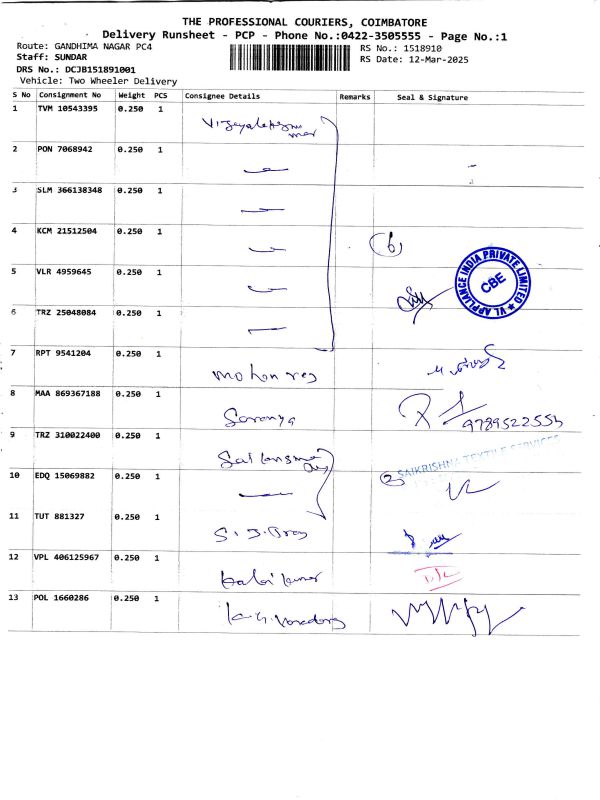 THE PROFESSIONAL COURIERS, COIMBATORE
Delivery Runsheet - PCP - Phone No.:0422-3505555 - Page No.:1
Route: GANDHIMA NAGAR PC4
RS No.: 1518910
Staff: SUNDAR
RS Date: 12-Mar-2025
DRS No.: DCJB151891001
Vehicle: Two Wheeler Delivery
S No Consignment No Weight PCS Consignee Details Remarks Seal & Signature
1 TVM 10543395 0.250 1
2 PON 7068942 0.250 1
3 SLM 366138348 0.250 1
4 KCM 21512504 0.250 1
(6)
VL APPLIANCE INDIA PRIVATE LIMITED
CBE
5 VLR 4959645 0.250 1
6 TRZ 25048084 0.250 1
7 RPT 9541204 0.250 1
8 MAA 869367188 0.250 1 Saranya
9 TRZ 310022400 0.250 1
SAIKRISHNA TEXTILE SERVICES
10 EDQ 15069882 0.250 1 (2)
11 TUT 881327 0.250 1
12 VPL 406125967 0.250 1
13 POL 1660286 0.250 1